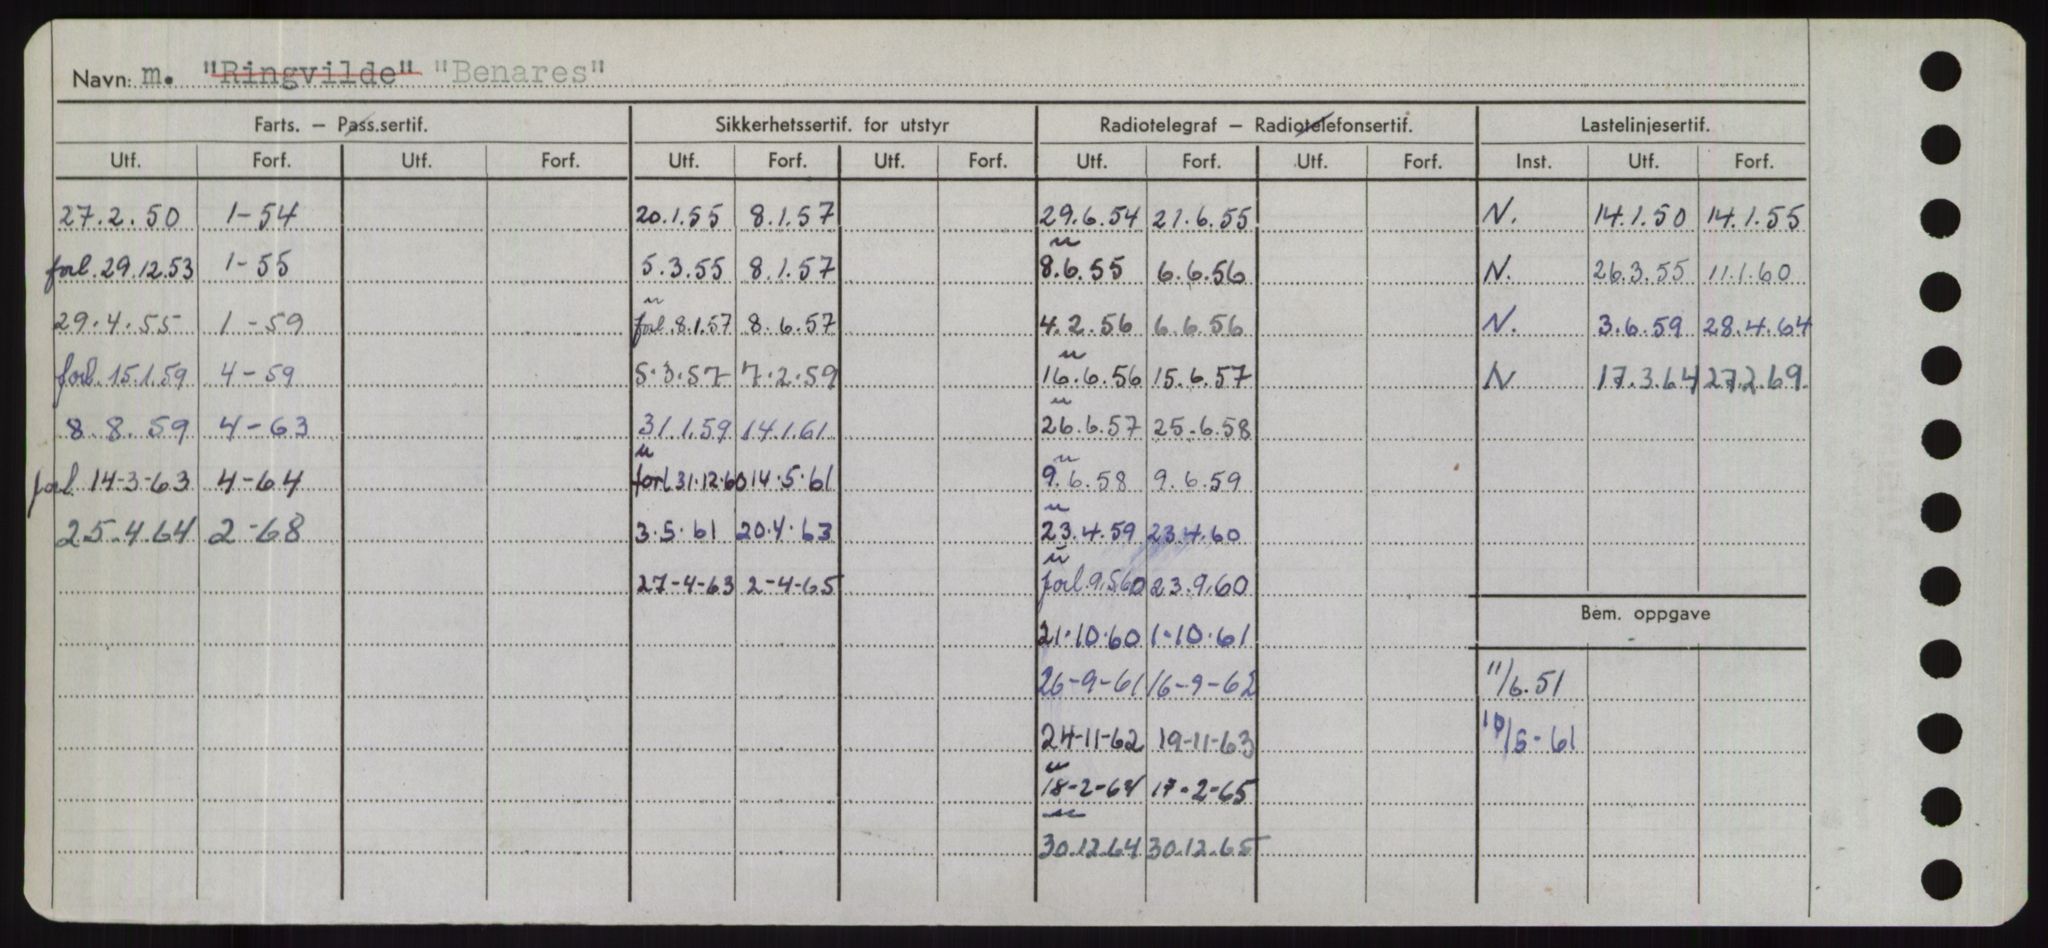 Navn: m. "Ringvilde" "Benares"
Farts. – Pass.sertif. Sikkerhetssertif. for utstyr Radiotelegraf – Radiotelefonsertif. Lastelinjesertif.
Utf. Forf. Utf. Forf. Utf. Forf. Utf. Forf. Utf. Forf. Utf. Forf. Inst. Utf. Forf.
27.2.50 1-54 20.1.55 8.1.57 29.6.54 21.6.55 N. 14.1.50 14.1.55
forl. 29.12.53 1-55 5.3.55 8.1.57 8.6.55 6.6.56 N. 26.3.55 11.1.60
29.4.55 1-59 forl. 8.1.57 8.6.57 4.2.56 6.6.56 N. 3.6.59 28.4.64
forl. 15.1.59 4-59 5.3.57 7.2.59 16.6.56 15.6.57 N 17.3.64 27.2.69.
8.8.59 4-63 31.1.59 14.1.61 26.6.57 25.6.58
forl. 14-3-63 4-64 forl 31.12.60 14.5.61 9.6.58 9.6.59
25.4.64 2-68 3.5.61 20.4.63 23.4.59 23.4.60
27-4-63 2-4-65 forl. 9.5.60 23.9.60
Bem. oppgave
21.10.60 1.10.61
26-9-61 16-9-62 11/6.51
24-11-62 19-11-63 10/5-61
18-2-64 17-2-65
30.12.64 30.12.65